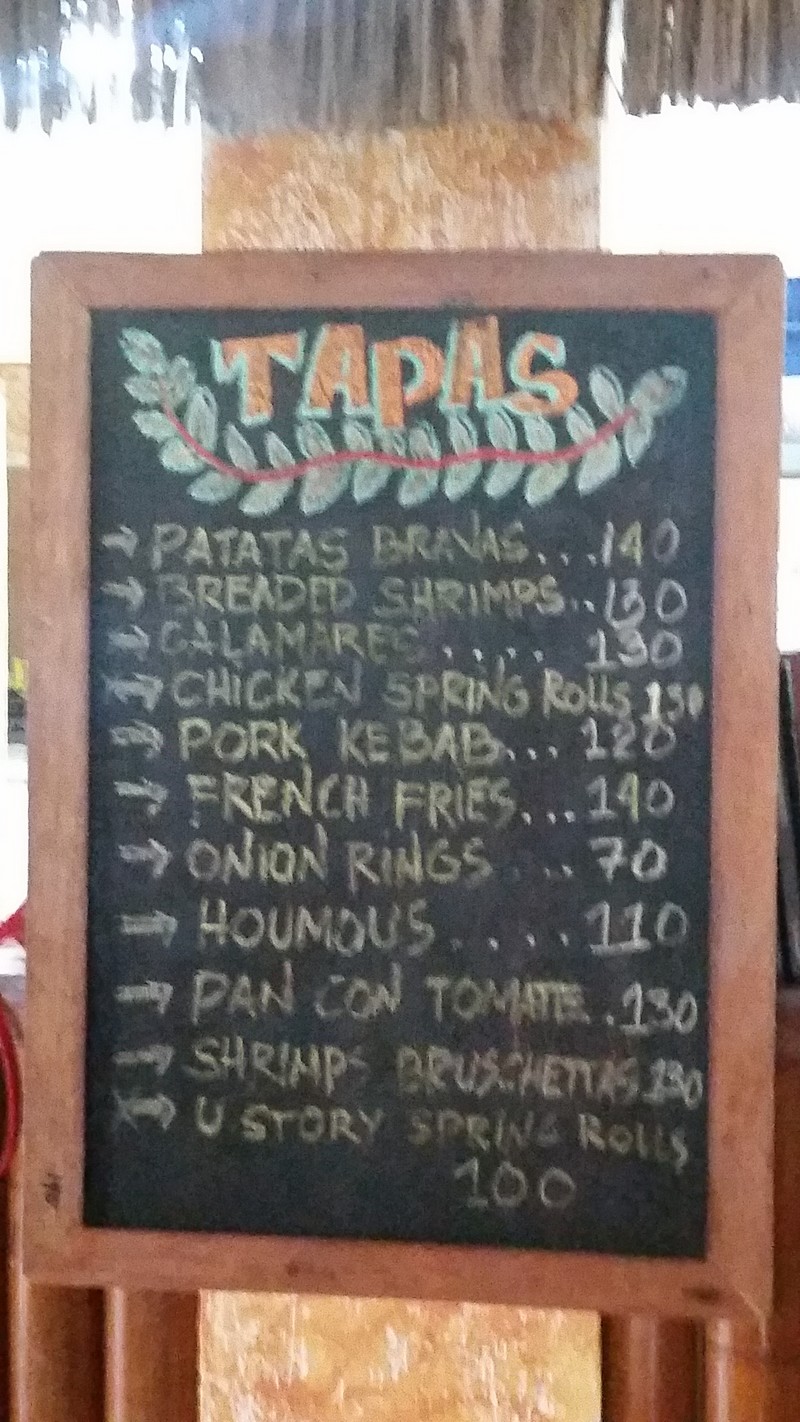 TAPAS
→ PATATAS BRAVAS...140
→ BREADED SHRIMPS..130
→ CALAMARES ..... 130
→ CHICKEN SPRING ROLLS 130
→ PORK KEBAB... 120
→ FRENCH FRIES...140
→ ONION RINGS ... 70
→ HOUMOUS ..... 110
→ PAN CON TOMATE .130
→ SHRIMPS BRUSCHETTAS 130
→ U STORY SPRING ROLLS
100